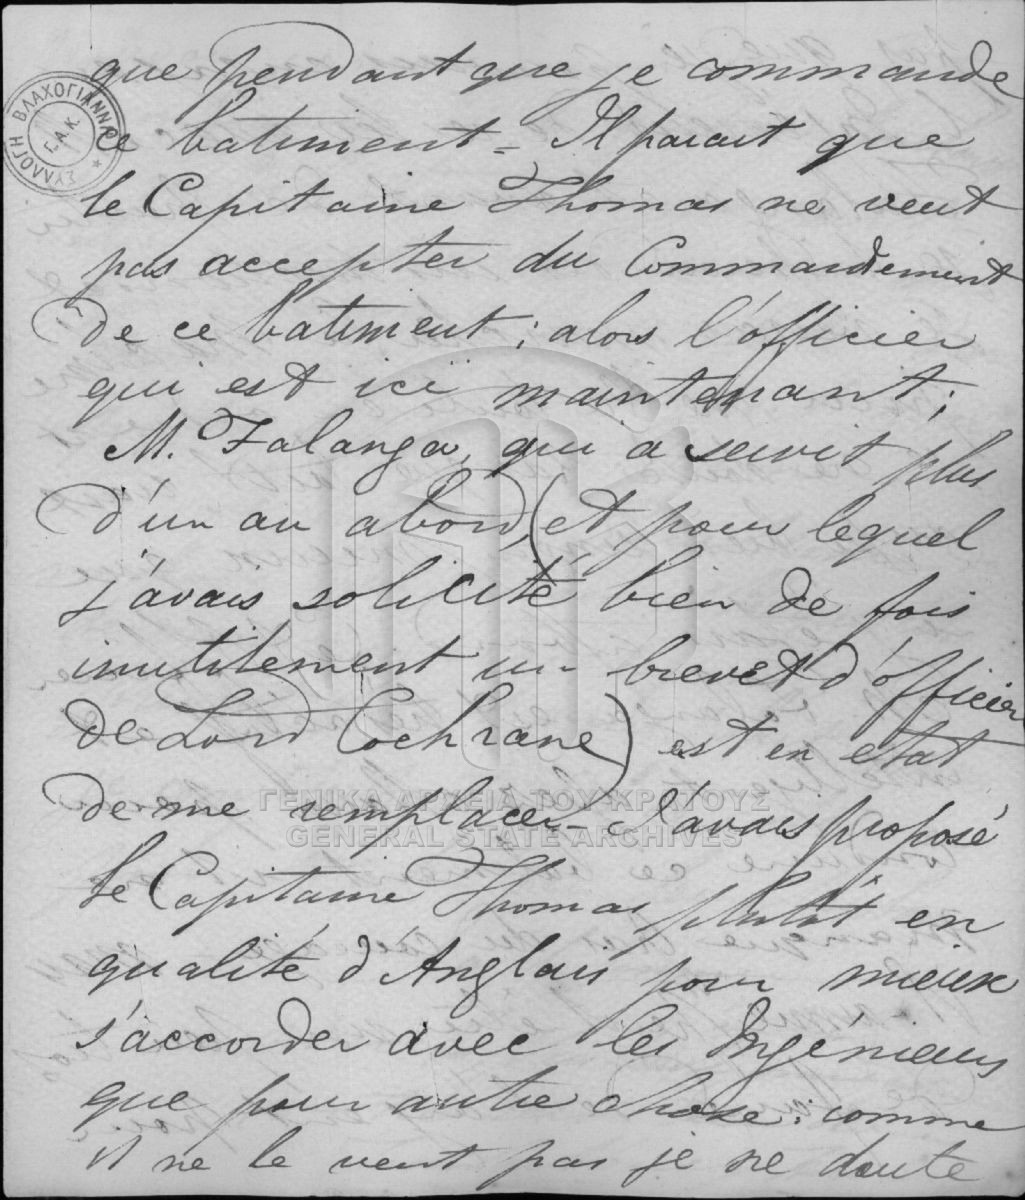 que pendant que je commande
ce batiment = Il parait que
le Capitaine Thomas ne veut
pas accepter du Commandement
de ce batiment; alors l'officier
qui est ici maintenant;
M. Falanga, qui a servit plus
d'un an abord, (et pour lequel
j'avais solicité bien de fois
inutilement un brevet d'officier
de Lord Cochrane) est en etat
de me remplacer = J'avais proposé
le Capitaine Thomas plutôt en
qualité d'Anglais pour mieux
s'accorder avec les Ingénieurs
que pour autre chose: comme
il ne le veut pas je ne doute
ΣΥΛΛΟΓΗ ΒΛΑΧΟΓΙΑΝΝΗ
Γ.Α.Κ.
ΓΕΝΙΚΑ ΑΡΧΕΙΑ ΤΟΥ ΚΡΑΤΟΥΣ
GENERAL STATE ARCHIVES